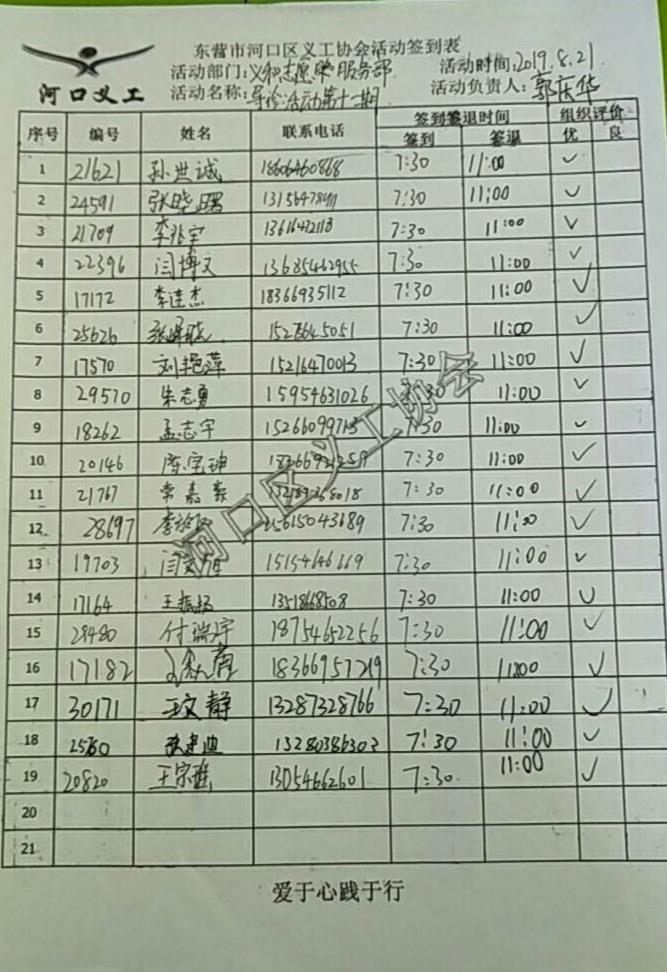 东营市河口区义工协会活动签到表
活动部门:义和志愿 服务部
活动时间:2019.8.21
河口义工
活动名称:导诊活动第十一期
活动负责人:郭庆华
序号 编号 姓名 联系电话 签到签退时间 组织评价
签到 签退 优 良
1 21621 孙世诚 18606460868 7:30 11:00 ✓
2 24591 张晓曙 7:30 11:00 ✓
3 21709 李兆宇 7:30 11:00 ✓
4 22396 闫博文 13685462955 7:30 11:00 ✓
5 17172 李连杰 18366935112 7:30 11:00 ✓
6 25626 7:30 11:00 ✓
7 17570 刘艳萍 15216470013 7:30 11:00 ✓
8 29570 朱志勇 15954631026 7:30 11:00 ✓
9 18262 孟志宇 7:30 11:00 ✓
10 20146 陈宝坤 7:30 11:00 ✓
11 21767 7:30 11:00 ✓
12 28697 7:30 11:00 ✓
13 19703 15154646669 7:30 11:00 ✓
14 17164 王振扬 7:30 11:00 ✓
15 付瑞宇 18754652256 7:30 11:00 ✓
16 17182 18366957219 7:30 11:00 ✓
17 30171 王文静 13287328766 7:30 11:00 ✓
18 张建迪 15280386303 7:30 11:00 ✓
19 20820 13054662601 7:30 11:00 ✓
20
21
河口区义工协会
爱于心践于行